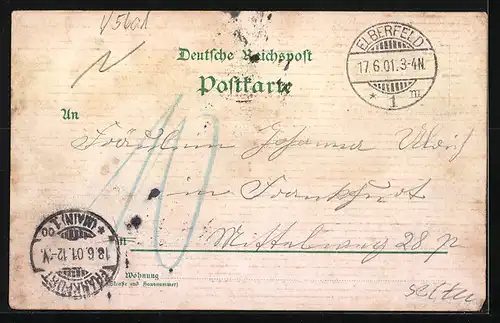 Deutsche Reichspost
Postkarte
ELBERFELD
17.6.01.3-4N.
* 1 m
An
Fräulein Johanna
10
in Frankfurt
in
Mittelweg 28 p
Wohnung
(Straße und Hausnummer)
FRANKFURT (MAIN) 1
18.6.01.12-